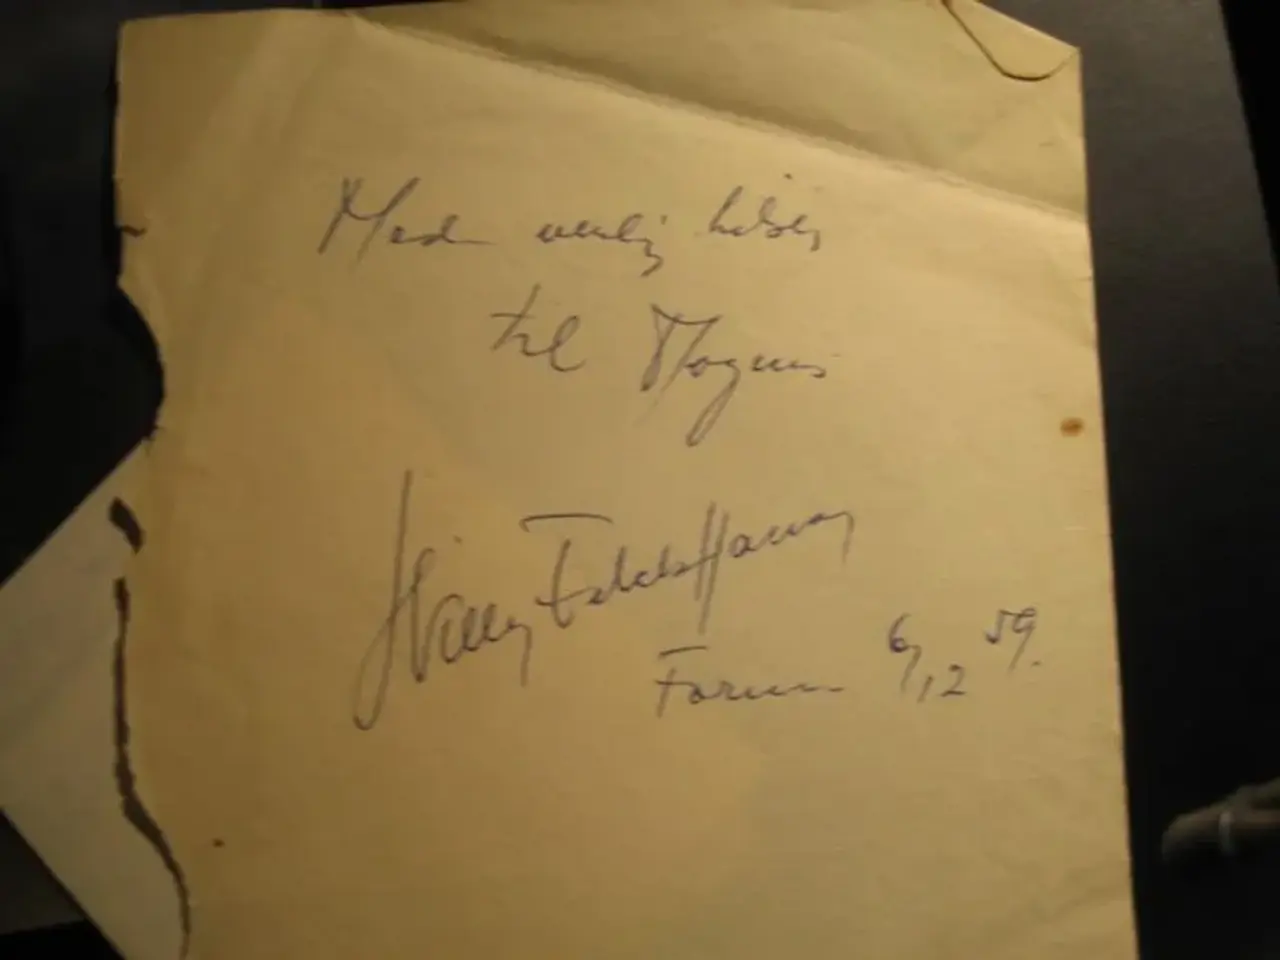 Med venlig hilsen
til Mogens
Willy Falck Hansen
Forum 6/12 59.